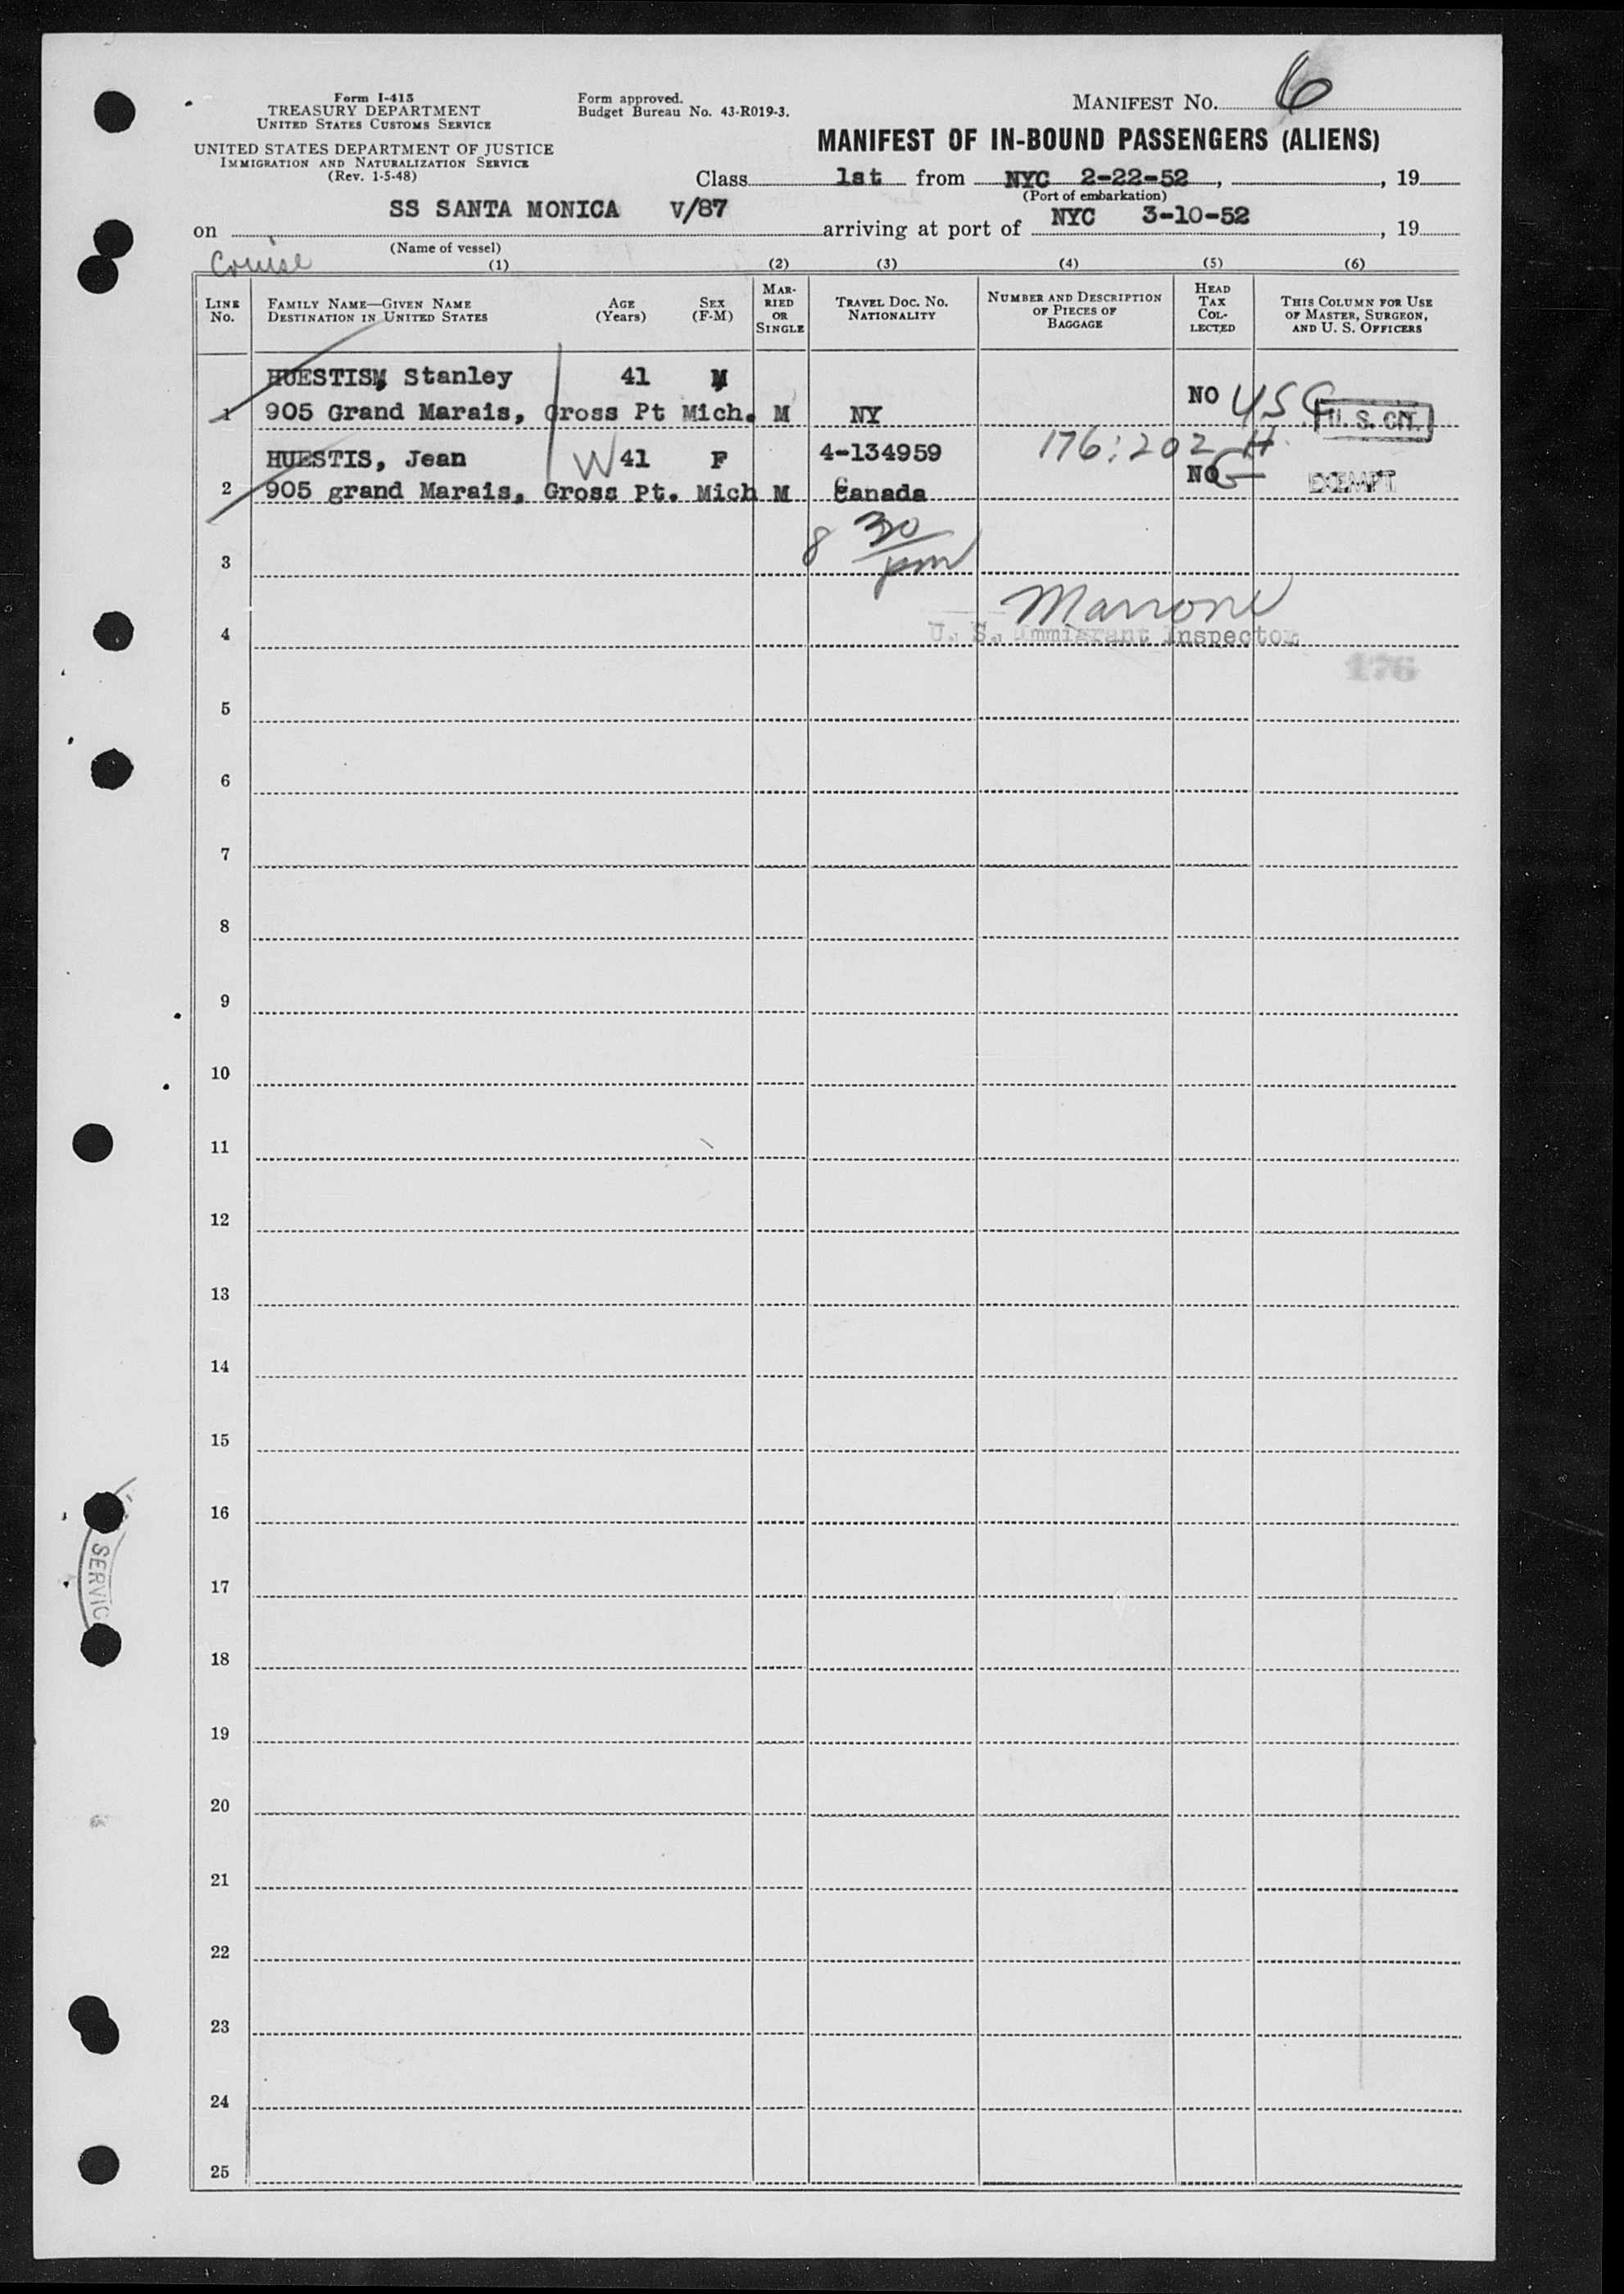 Form I-415
TREASURY DEPARTMENT
UNITED STATES CUSTOMS SERVICE
UNITED STATES DEPARTMENT OF JUSTICE
IMMIGRATION AND NATURALIZATION SERVICE
(Rev. 1-5-48)
Form approved.
Budget Bureau No. 43-R019-3.
MANIFEST NO. 6
MANIFEST OF IN-BOUND PASSENGERS (ALIENS)
Class 1st from NYC 2-22-52, , 19
(Port of embarkation)
on SS SANTA MONICA V/87 arriving at port of NYC 3-10-52, 19
(Name of vessel)
(1) (2) (3) (4) (5) (6)
LINE NO.
FAMILY NAME—GIVEN NAME
DESTINATION IN UNITED STATES
AGE
(Years)
SEX
(F-M)
MARRIED OR SINGLE
TRAVEL DOC. NO.
NATIONALITY
NUMBER AND DESCRIPTION
OF PIECES OF
BAGGAGE
HEAD
TAX
COL-
LECTED
THIS COLUMN FOR USE
OF MASTER, SURGEON,
AND U. S. OFFICERS
HUESTIS, Stanley 41 M
1 905 Grand Marais, Gross Pt Mich. M NY NO USC U. S. CIT.
HUESTIS, Jean W 41 F 4-134959 176:202 H
2 905 grand Marais, Gross Pt. Mich M Canada NO EXEMPT
8 30/pm
3
Marrone
4 U. S. Immigrant Inspector
176
5
6
7
8
9
10
11
12
13
14
15
16
SERVIC
17
18
19
20
21
22
23
24
25